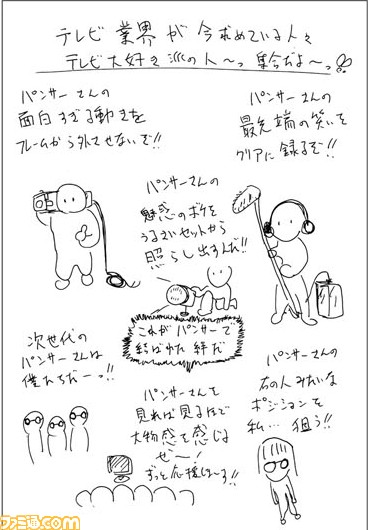 テレビ業界が今求めている人々
テレビ大好き派の人〜っ集合だよ〜っ!!
パンサーさんの
面白すぎる動きを
フレームから外させないぞ!!
パンサーさんの
最先端の笑いを
クリアに録るぞ!!
パンサーさんの
魅惑のボケを
うるさいセットから
照らし出すんだ!!
これがパンサーで
結ばれた絆だ
次世代の
パンサーさんは
僕たちだーっ!!
パンサーさんを
見れば見るほど
大物感を感じる
ぜ〜!
ずっと応援しまーす!!
パンサーさんの
右の人みたいな
ポジションを
私…狙う!!
ファミ通.com